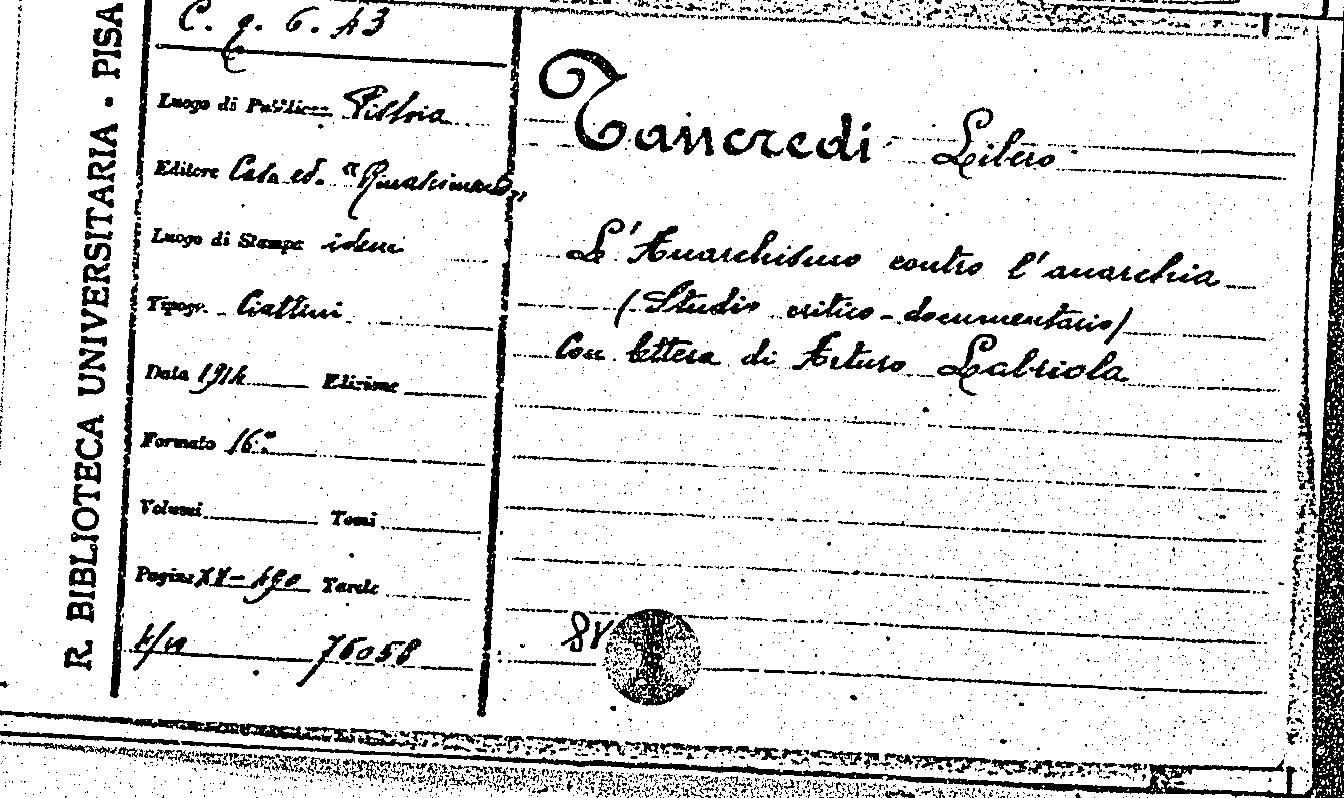 R. BIBLIOTECA UNIVERSITARIA - PISA
C. q. 6. 43
Luogo di Pubblicaz. Pistoia
Editore Casa ed. "Rinascimento"
Luogo di Stampa idem
Tipogr. Ciattini
Data 1914 Edizione
Formato 16°
Volumi Tomi
Pagine XX-490 Tavole
76058
Tancredi Libero
L'Anarchismo contro l'anarchia
(Studio critico-documentario)
Con lettera di Arturo Labriola